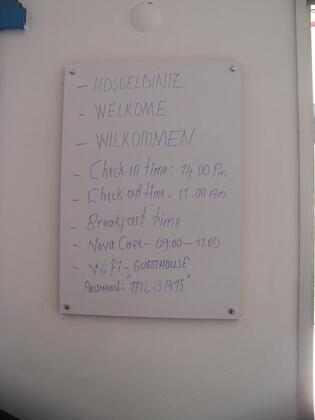 - HOŞGELDİNİZ
- WELKOME
- WILKOMMEN
- Check-in time: 14.00 Pm
- Check out time - 11:00 Am
- Breakfast time
- Nova Cafe - 09.00 - 11.00
- WiFi - GUESTHOUSE
Password: